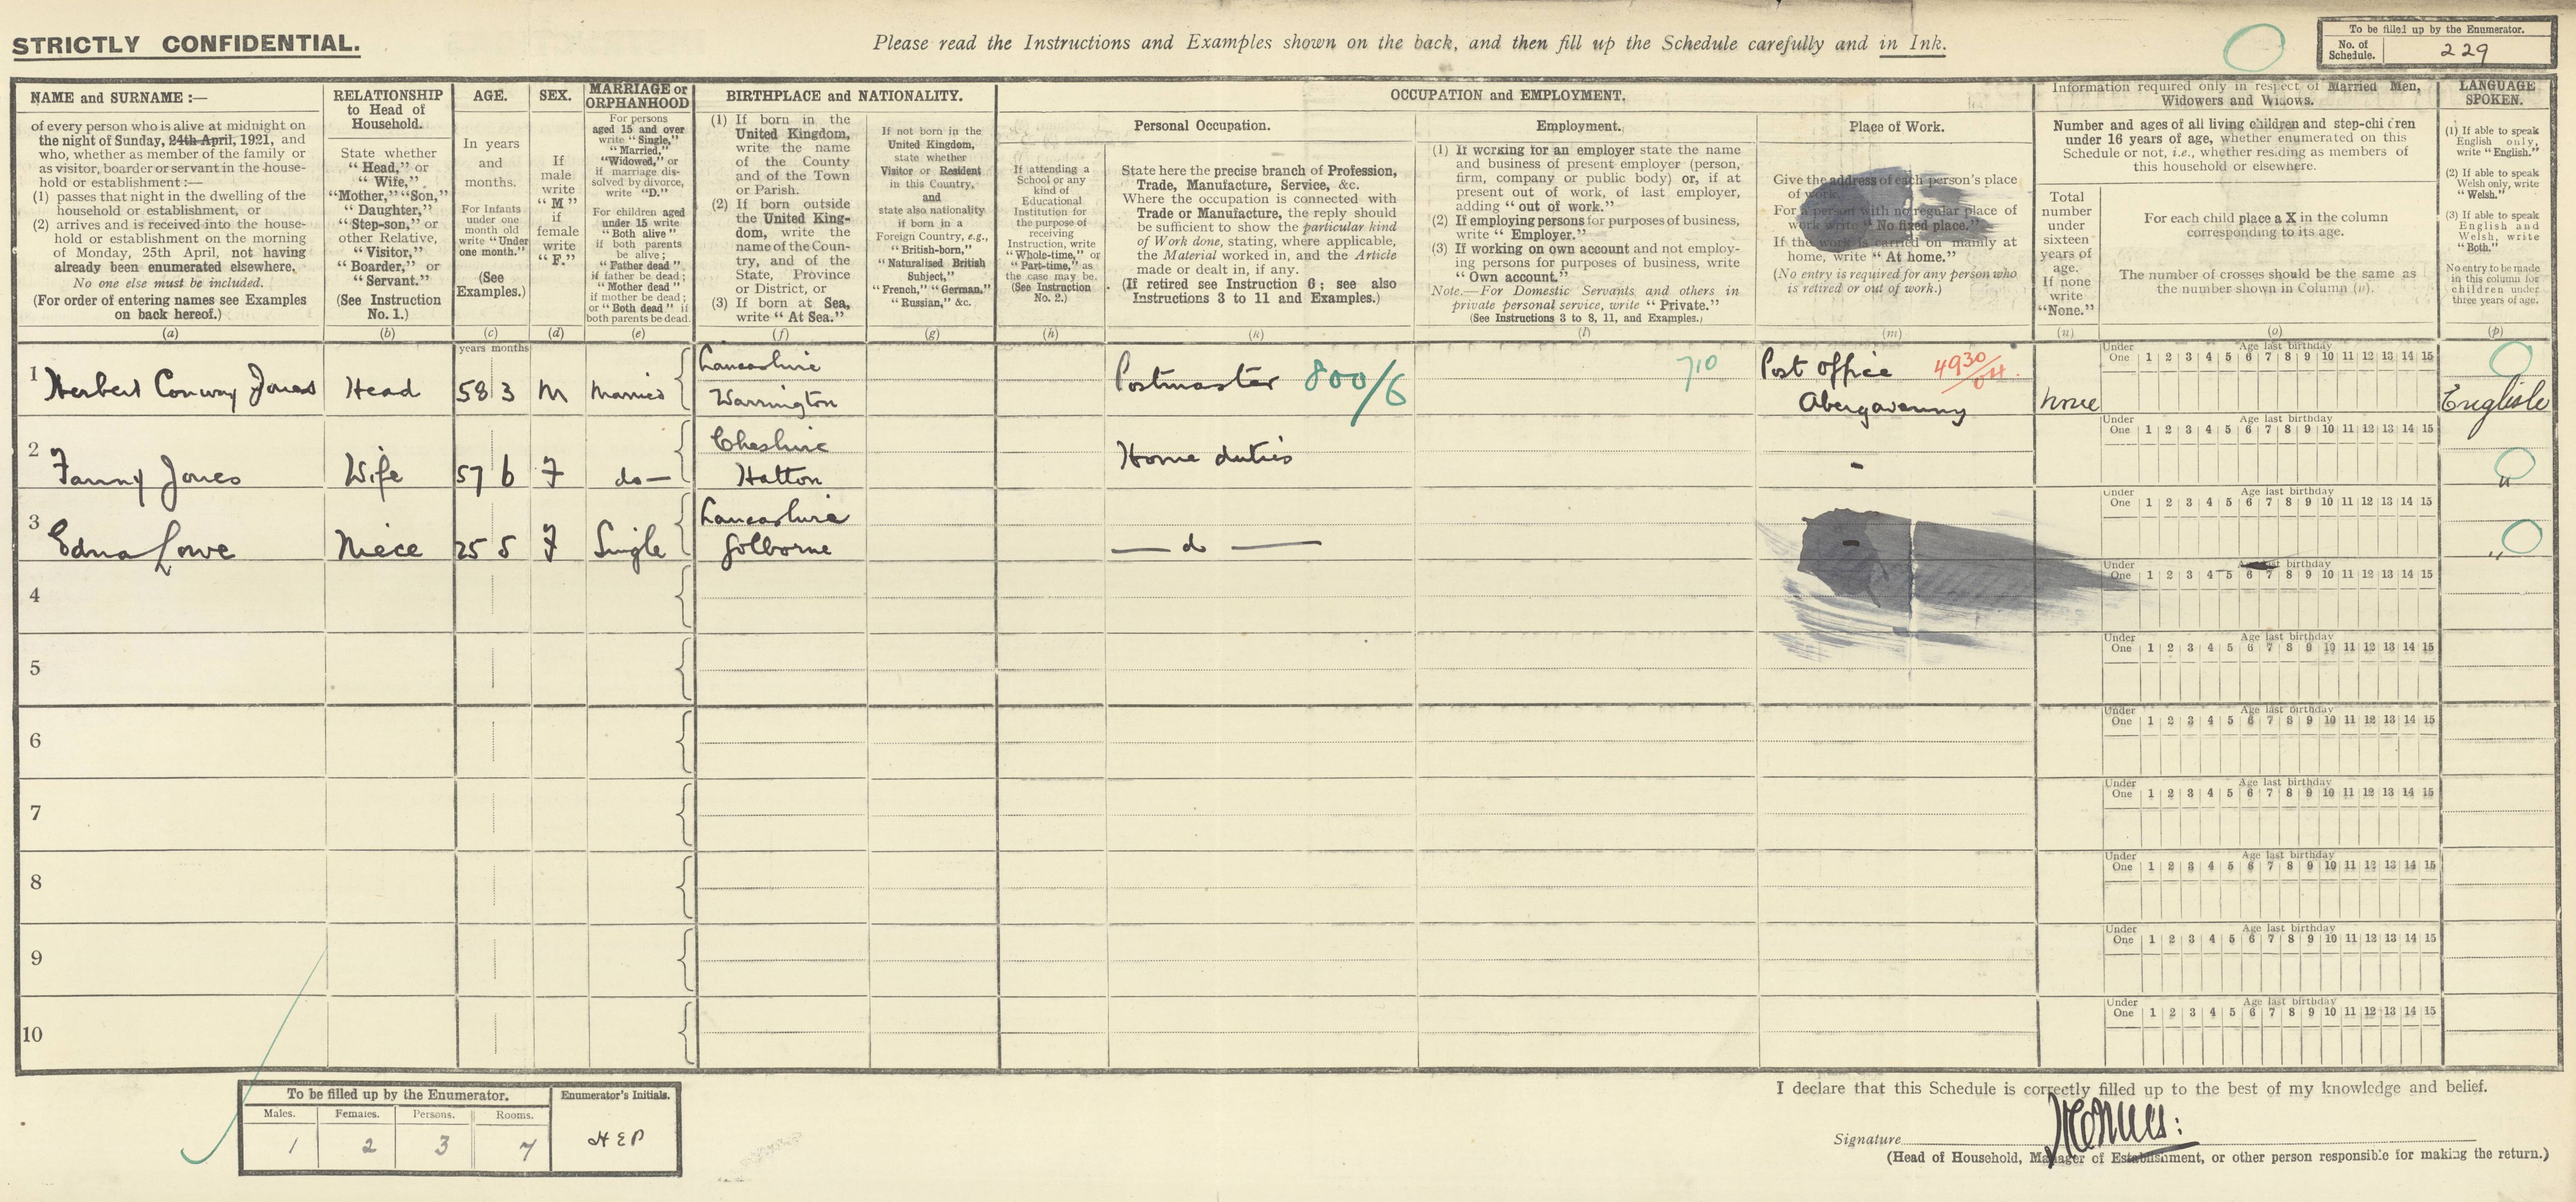 STRICTLY CONFIDENTIAL.
Please read the Instructions and Examples shown on the back, and then fill up the Schedule carefully and in Ink.
To be filled up by the Enumerator.
No. of Schedule. 229
NAME and SURNAME :—
of every person who is alive at midnight on
the night of Sunday, 24th April, 1921, and
who, whether as member of the family or
as visitor, boarder or servant in the house-
hold or establishment :—
(1) passes that night in the dwelling of the
household or establishment, or
(2) arrives and is received into the house-
hold or establishment on the morning
of Monday, 25th April, not having
already been enumerated elsewhere.
No one else must be included.
(For order of entering names see Examples
on back hereof.)
(a)
RELATIONSHIP
to Head of
Household.
State whether
"Head," or
"Wife,"
"Mother," "Son,"
"Daughter,"
"Step-son," or
other Relative,
"Visitor,"
"Boarder," or
"Servant."
(See Instruction
No. 1.)
(b)
AGE.
In years
and
months.
For Infants
under one
month old
write "Under
one month."
(See
Examples.)
(c)
SEX.
If
male
write
"M"
if
female
write
"F."
(d)
MARRIAGE or
ORPHANHOOD
For persons
aged 15 and over
write "Single,"
"Married,"
"Widowed," or
if marriage dis-
solved by divorce,
write "D."
For children aged
under 15 write
"Both alive"
if both parents
be alive;
"Father dead"
if father be dead;
"Mother dead"
if mother be dead;
or "Both dead" if
both parents be dead.
(e)
BIRTHPLACE and NATIONALITY.
(1) If born in the
United Kingdom,
write the name
of the County
and of the Town
or Parish.
(2) If born outside
the United King-
dom, write the
name of the Coun-
try, and of the
State, Province
or District, or
(3) If born at Sea,
write "At Sea."
(f)
If not born in the
United Kingdom,
state whether
Visitor or Resident
in this Country,
and
state also nationality
if born in a
Foreign Country, e.g.,
"British-born,"
"Naturalised British
Subject,"
"French," "German,"
"Russian," &c.
(g)
OCCUPATION and EMPLOYMENT.
If attending a
School or any
kind of
Educational
Institution for
the purpose of
receiving
Instruction, write
"Whole-time," or
"Part-time," as
the case may be.
(See Instruction
No. 2.)
(h)
Personal Occupation.
State here the precise branch of Profession,
Trade, Manufacture, Service, &c.
Where the occupation is connected with
Trade or Manufacture, the reply should
be sufficient to show the particular kind
of Work done, stating, where applicable,
the Material worked in, and the Article
made or dealt in, if any.
(If retired see Instruction 6; see also
Instructions 3 to 11 and Examples.)
(k)
Employment.
(1) If working for an employer state the name
and business of present employer (person,
firm, company or public body) or, if at
present out of work, of last employer,
adding "out of work."
(2) If employing persons for purposes of business,
write "Employer."
(3) If working on own account and not employ-
ing persons for purposes of business, write
"Own account."
Note.—For Domestic Servants and others in
private personal service, write "Private."
(See Instructions 3 to 8, 11, and Examples.)
(l)
Place of Work.
Give the address of each person's place
of work.
For a person with no regular place of
work write "No fixed place."
If the work is carried on mainly at
home, write "At home."
(No entry is required for any person who
is retired or out of work.)
(m)
Information required only in respect of Married Men,
Widowers and Widows.
Number and ages of all living children and step-children
under 16 years of age, whether enumerated on this
Schedule or not, i.e., whether residing as members of
this household or elsewhere.
Total
number
under
sixteen
years of
age.
If none
write
"None."
(n)
For each child place a X in the column
corresponding to its age.
The number of crosses should be the same as
the number shown in Column (n).
(o)
LANGUAGE
SPOKEN.
(1) If able to speak
English only,
write "English."
(2) If able to speak
Welsh only, write
"Welsh."
(3) If able to speak
English and
Welsh, write
"Both."
No entry to be made
in this column for
children under
three years of age.
(p)
years months
1 Herbert Conway Jones Head 58 3 M Married Lancashire Warrington Postmaster 800/6 710 Post Office Abergavenny 4930/04. None English
Under One Age last birthday 1 2 3 4 5 6 7 8 9 10 11 12 13 14 15
2 Fanny Jones Wife 57 6 F do— Cheshire Hatton Home duties - "
Under One Age last birthday 1 2 3 4 5 6 7 8 9 10 11 12 13 14 15
3 Edna Lowe Niece 25 5 F Single Lancashire Golborne — do — - "
Under One Age last birthday 1 2 3 4 5 6 7 8 9 10 11 12 13 14 15
4
Under One Age last birthday 1 2 3 4 5 6 7 8 9 10 11 12 13 14 15
5
Under One Age last birthday 1 2 3 4 5 6 7 8 9 10 11 12 13 14 15
6
Under One Age last birthday 1 2 3 4 5 6 7 8 9 10 11 12 13 14 15
7
Under One Age last birthday 1 2 3 4 5 6 7 8 9 10 11 12 13 14 15
8
Under One Age last birthday 1 2 3 4 5 6 7 8 9 10 11 12 13 14 15
9
Under One Age last birthday 1 2 3 4 5 6 7 8 9 10 11 12 13 14 15
10
Under One Age last birthday 1 2 3 4 5 6 7 8 9 10 11 12 13 14 15
To be filled up by the Enumerator.
Males. Females. Persons. Rooms.
1 2 3 7
Enumerator's Initials.
HEP
I declare that this Schedule is correctly filled up to the best of my knowledge and belief.
Signature
(Head of Household, Manager of Establishment, or other person responsible for making the return.)